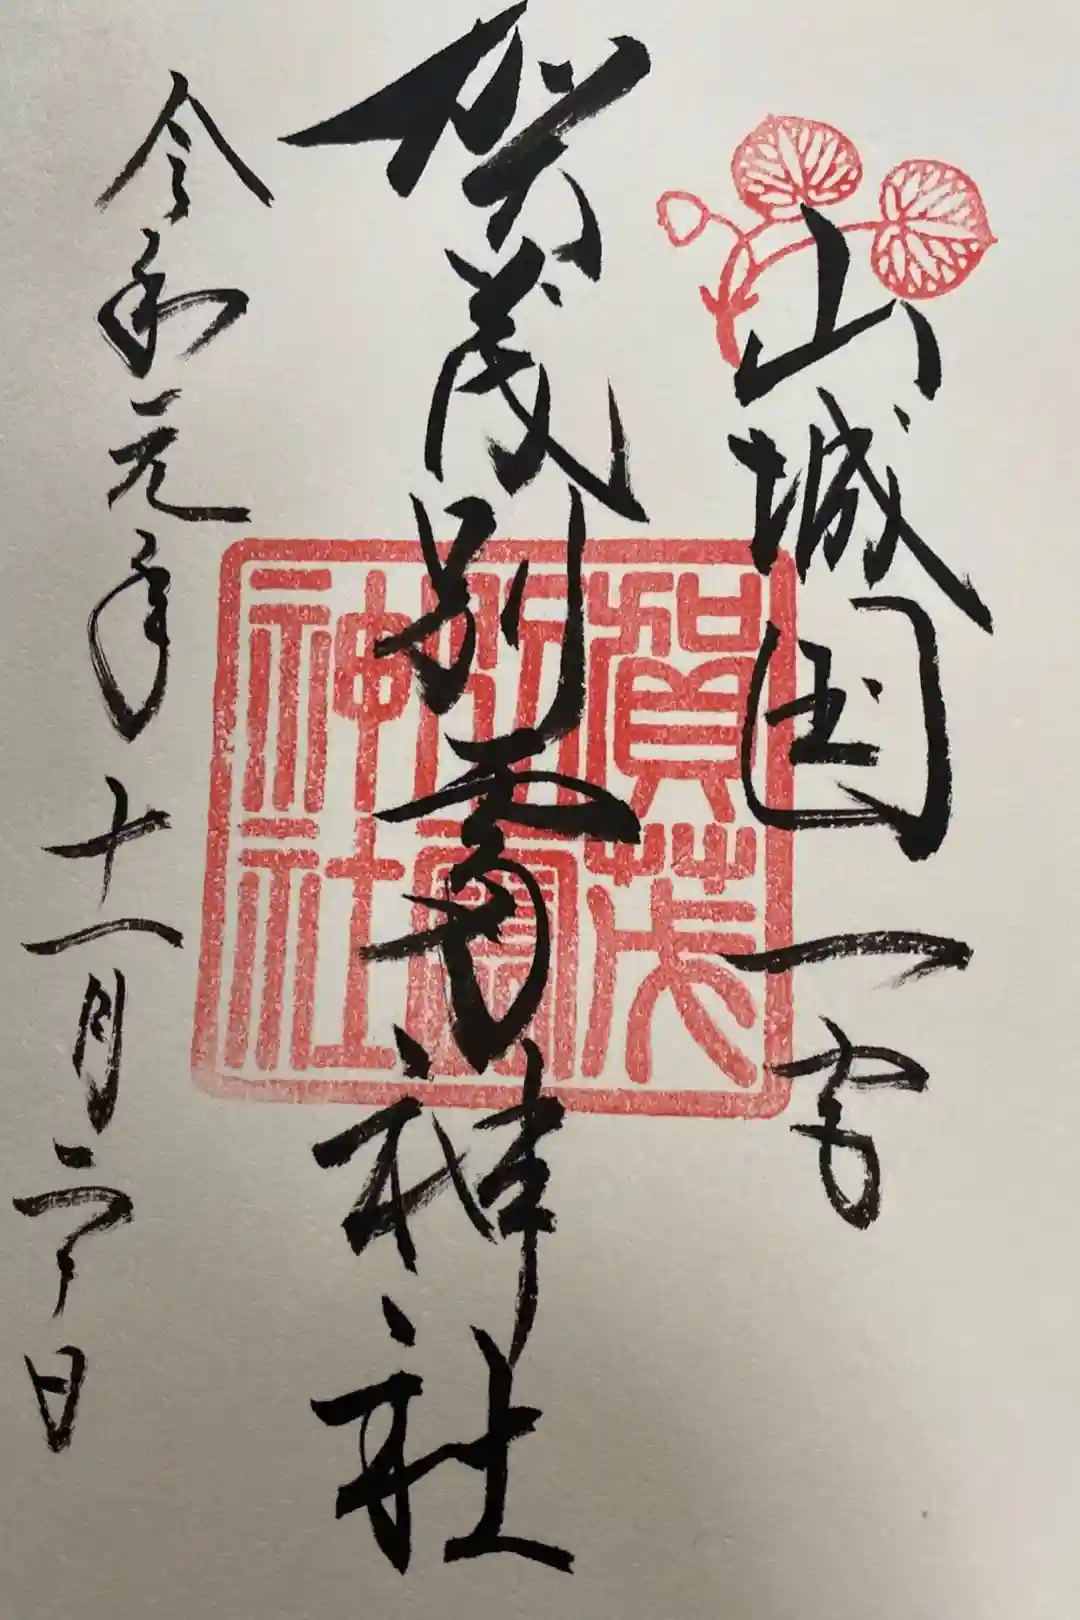 山城国一宮
賀茂別雷神社
令和元年十一月二日
賀茂
別雷
神社